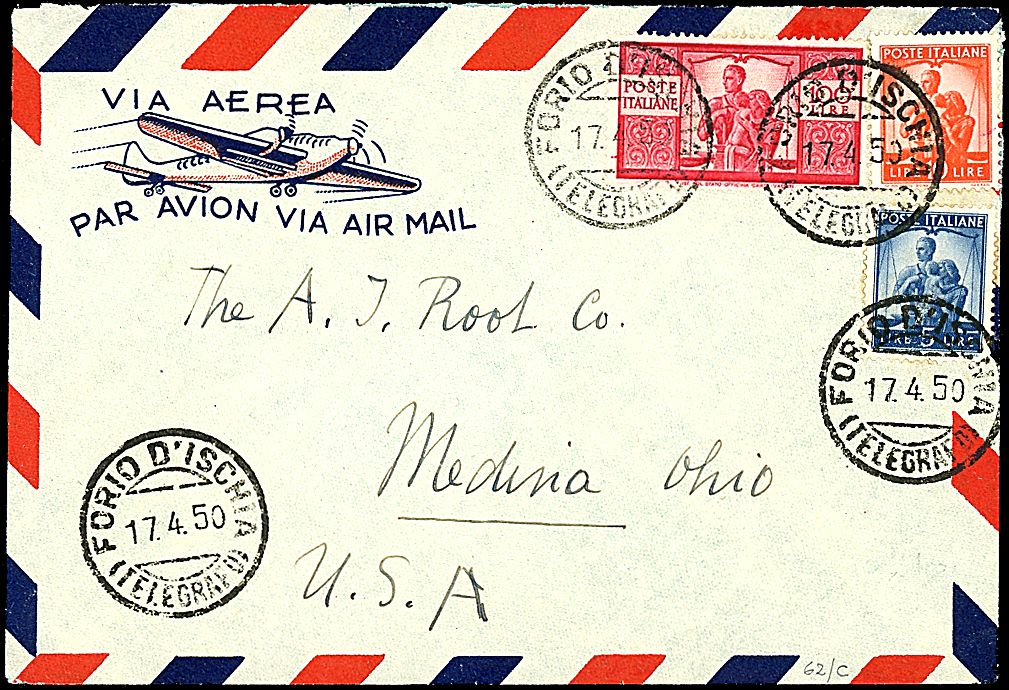 VIA AEREA
PAR AVION VIA AIR MAIL
POSTE
ITALIANE
100
LIRE
POSTE ITALIANE
LIRE LIRE
POSTE ITALIANE
LIRE 5 LIRE
FORIO D'ISCHIA
17.4.50
(TELEGRAFO)
FORIO D'ISCHIA
17.4.50
(TELEGRAFO)
FORIO D'ISCHIA
17.4.50
(TELEGRAFO)
The A. I. Root Co.
Medina Ohio
U.S.A
FORIO D'ISCHIA
17.4.50
(TELEGRAFO)
62/C